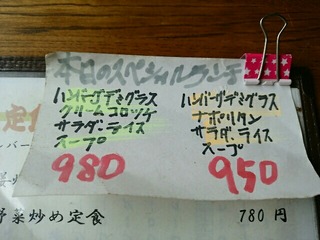 本日のスペシャルランチ
ハンバーグデミグラス
クリームコロッケ
サラダ・ライス
スープ
980
ハンバーグデミグラス
ナポリタン
サラダ・ライス
スープ
950
野菜炒め定食 780円